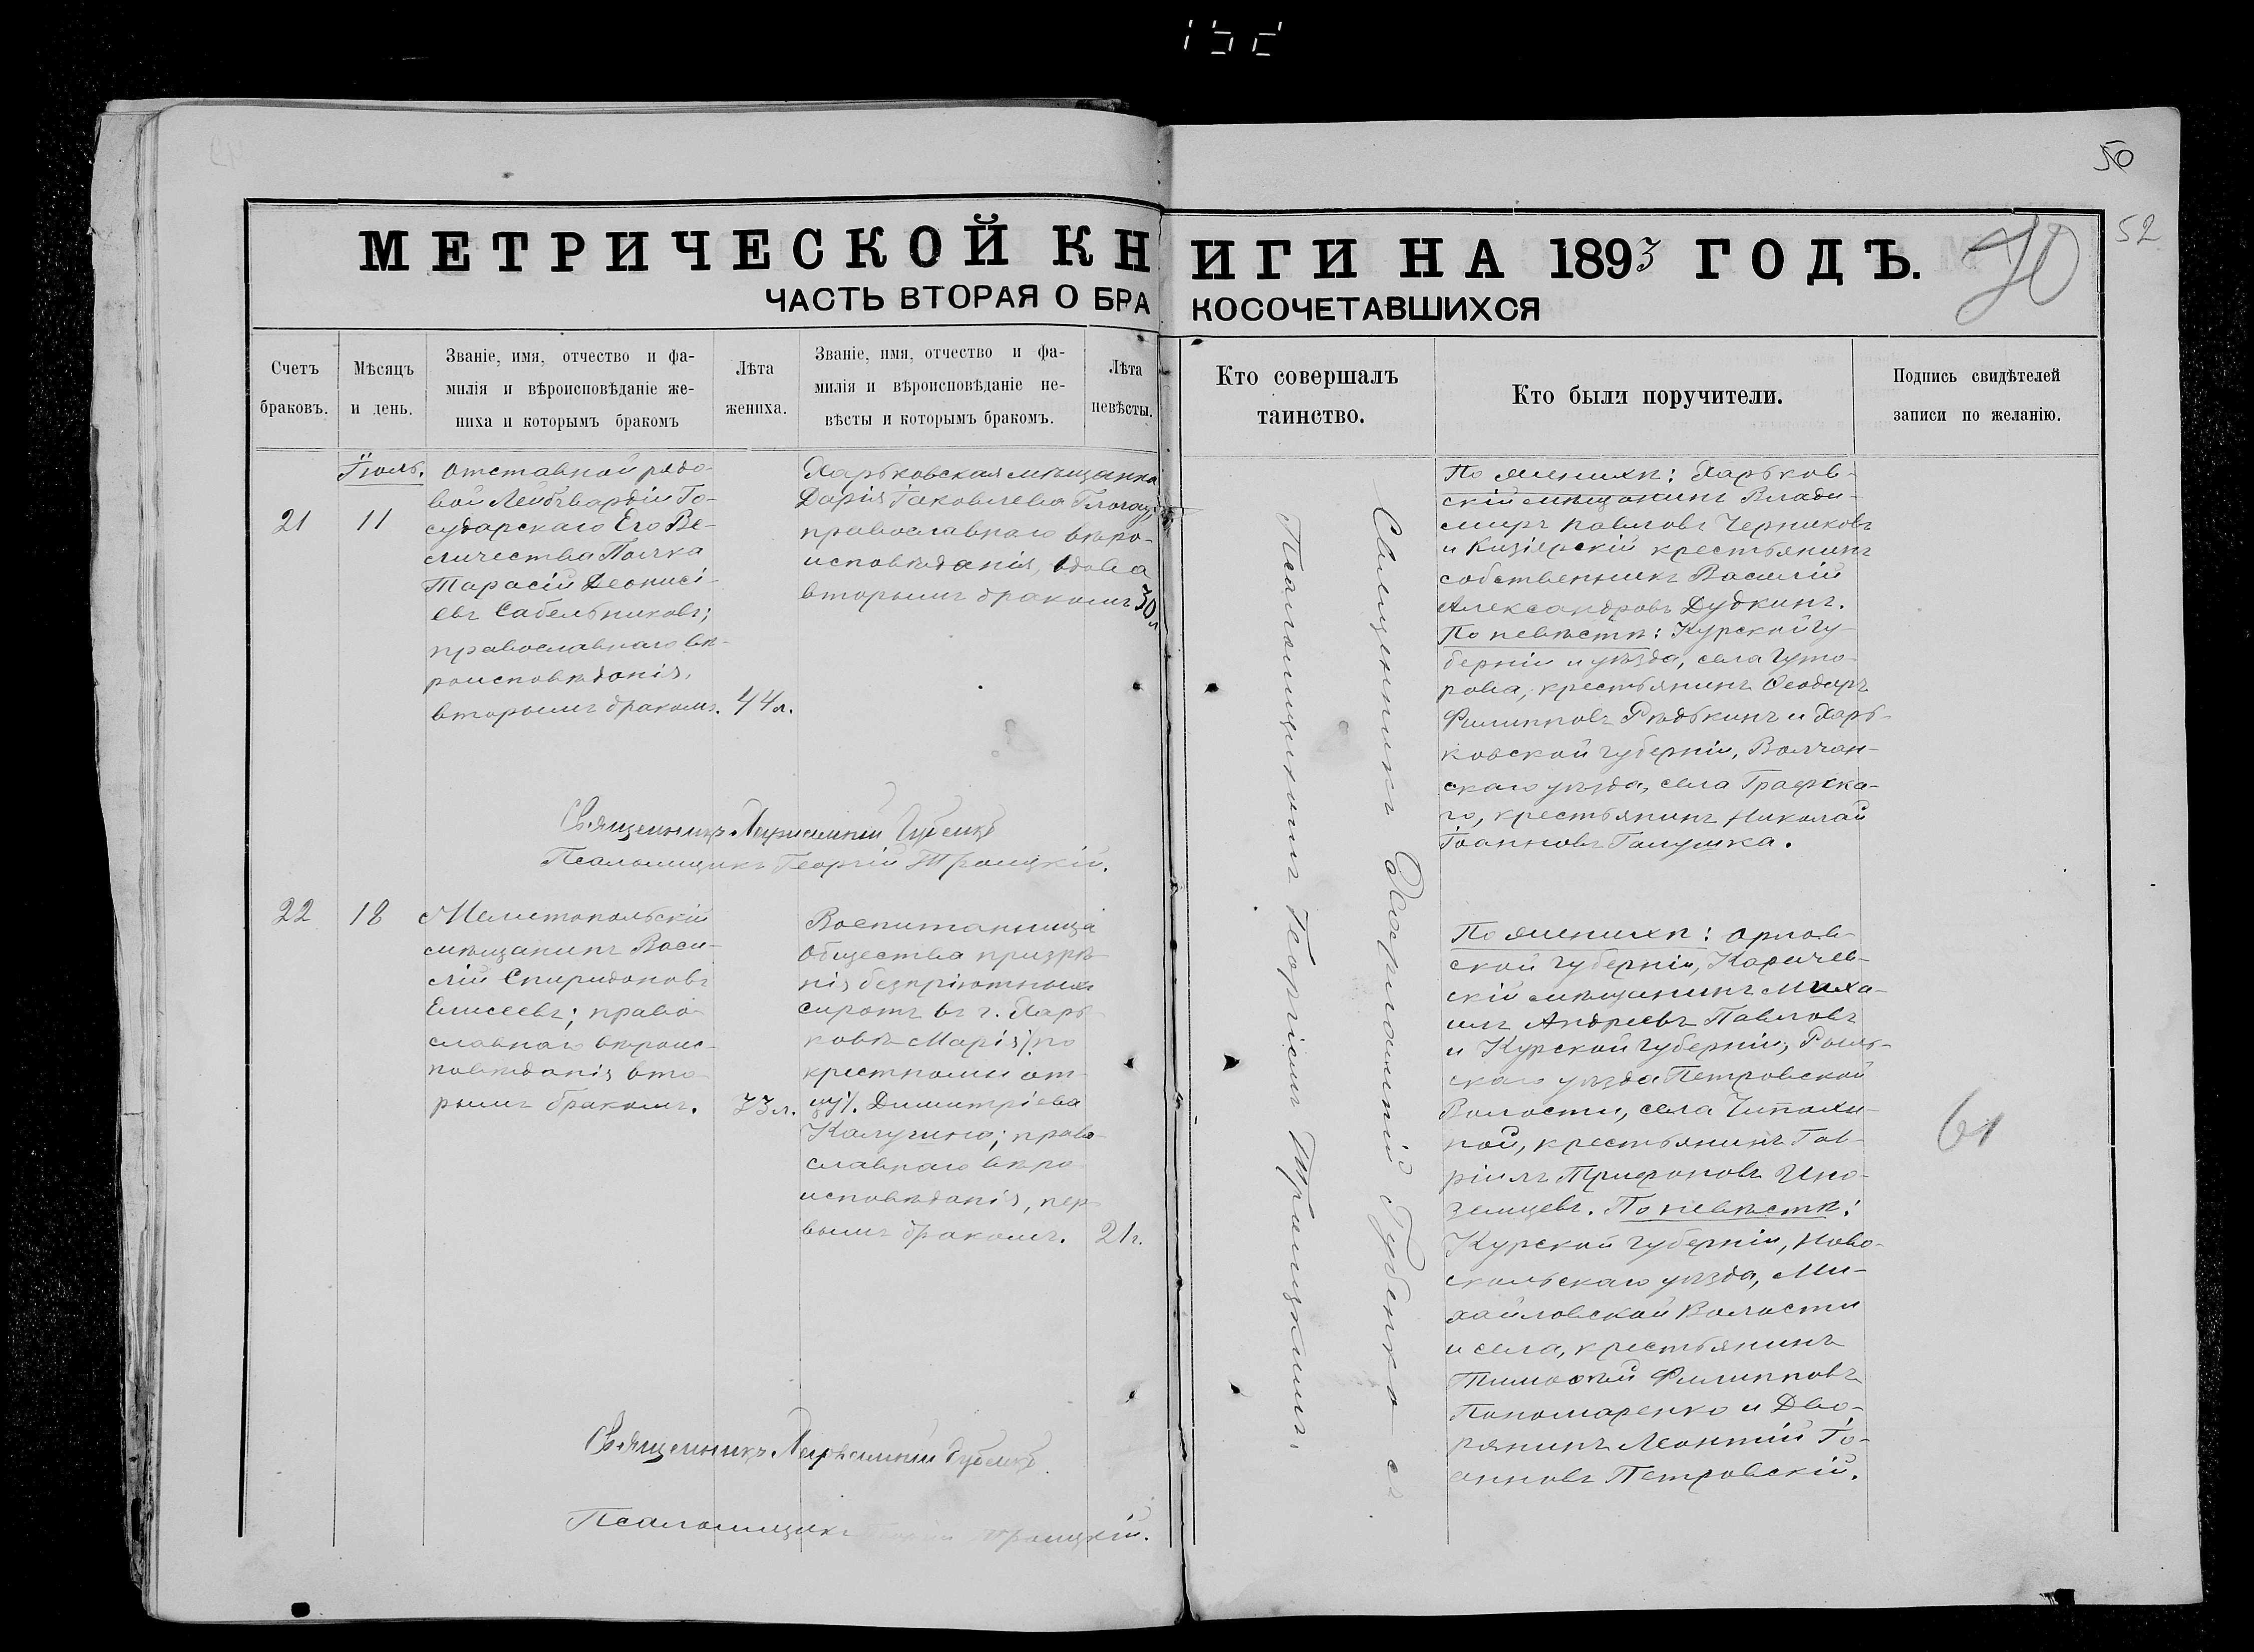 50
52
70
МЕТРИЧЕСКОЙ КНИГИ НА 1893 ГОДЪ.
ЧАСТЬ ВТОРАЯ О БРАКОСОЧЕТАВШИХСЯ
Счетъ
браковъ.
Мѣсяцъ
и день.
Званіе, имя, отчество и фа-
милія и вѣроисповѣданіе же-
ниха и которымъ бракомъ
Лѣта
жениха.
Званіе, имя, отчество и фа-
милія и вѣроисповѣданіе не-
вѣсты и которымъ бракомъ.
Лѣта
невѣсты.
Кто совершалъ
таинство.
Кто были поручители.
Подпись свидѣтелей
записи по желанію.
21
Іюль.
11
Отставной рядо-
вой Лейбгвардіи Го-
сударскаго Его Ве-
личества Полка
Тарасій Деонисі-
евъ Сабельниковъ;
православнаго вѣ-
роисповѣданія,
вторымъ бракомъ.
44 л.
Харьковская мѣщанка
Дарія Іаковлева
православнаго вѣро-
исповѣданія, вдова
вторымъ бракомъ
30 л.
Священникъ Губенко
Псаломщикъ Георгій Троицкій.
Священникъ Губенко съ
Псаломщикомъ Георгіемъ Троицкимъ.
По женихѣ: Харьков-
скій мѣщанинъ Влади-
миръ Павловъ Черниковъ
и крестьянинъ
собственникъ Василій
Александровъ Дудкинъ.
По невѣстѣ: Курской гу-
берніи и уѣзда, села Гуто-
рова, крестьянинъ Ѳеодоръ
Филипповъ Рѣдькинъ и Харь-
ковской губерніи, Волчан-
скаго уѣзда, села Графска-
го, крестьянинъ Николай
Іоанновъ Галушка.
22
18
Мелитопольскій
мѣщанинъ Васи-
лій Спиридоновъ
Елисеевъ; право-
славнаго вѣроис-
повѣданія вто-
рымъ бракомъ.
33 л.
Воспитанница
Общества призрѣ-
нія безпріютныхъ
сиротъ въ г. Харь-
ковѣ Марія /по
крестномъ от-
цу/. Димитріева
Калугина; право-
славнаго вѣро-
исповѣданія, пер-
вымъ бракомъ.
21 г.
По женихѣ: Орлов-
ской губерніи, Карачев-
скій мѣщанинъ Миха-
илъ Андреевъ Павловъ
и Курской губерніи, Рыль-
скаго уѣзда Петровской
Волости, села
крестьянинъ Гав-
ріилъ Трифоновъ Ино-
земцевъ. По невѣстѣ:
Курской губерніи, Ново-
скольскаго уѣзда, Ми-
хайловской Волости
и села, крестьянинъ
Тимоѳей Филипповъ
Пономаренко и Дво-
рянинъ Леонтій Іо-
анновъ Петровскій.
61
Священникъ Губенко
Псаломщикъ Георгій Троицкій.